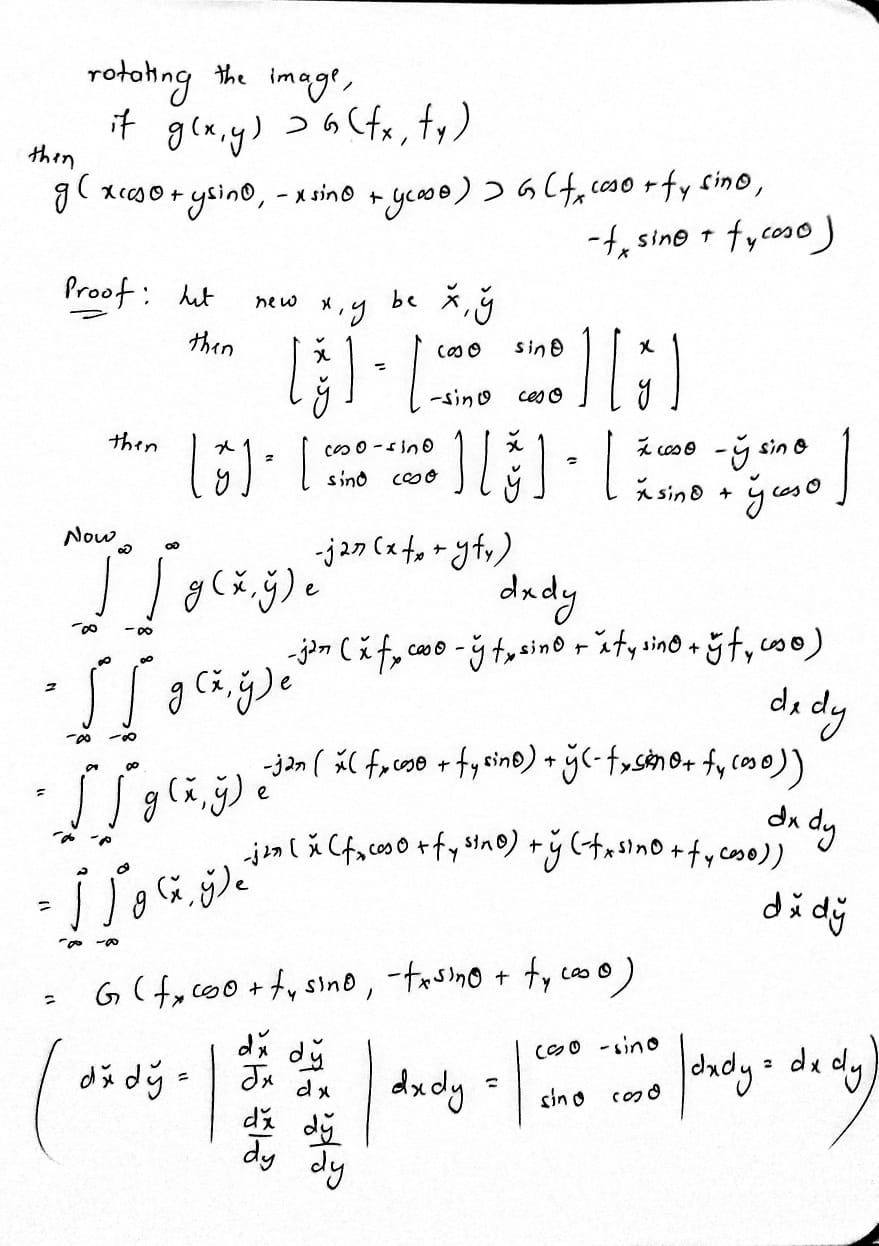 rotating the image,
if g(x,y) ⊃ G(fx, fy)
then
g( x cosθ + y sinθ, -x sinθ + y cosθ ) ⊃ G( fx cosθ + fy sinθ,
-fx sinθ + fy cosθ )
Proof: Let new x, y be x̌, y̌
then [ x̌ ; y̌ ] = [ cosθ sinθ ; -sinθ cosθ ] [ x ; y ]
then [ x ; y ] = [ cosθ -sinθ ; sinθ cosθ ] [ x̌ ; y̌ ] = [ x̌ cosθ - y̌ sinθ ; x̌ sinθ + y̌ cosθ ]
Now
∫_{-∞}^{∞} ∫_{-∞}^{∞} g(x̌, y̌) e^{-j2π(x fx + y fy)} dx dy
= ∫_{-∞}^{∞} ∫_{-∞}^{∞} g(x̌, y̌) e^{-j2π( x̌ fx cosθ - y̌ fx sinθ + x̌ fy sinθ + y̌ fy cosθ )} dx dy
= ∫_{-∞}^{∞} ∫_{-∞}^{∞} g(x̌, y̌) e^{-j2π( x̌( fx cosθ + fy sinθ) + y̌(-fx sinθ + fy cosθ))} dx dy
= ∫_{-∞}^{∞} ∫_{-∞}^{∞} g(x̌, y̌) e^{-j2π( x̌ (fx cosθ + fy sinθ) + y̌ (-fx sinθ + fy cosθ))} dx̌ dy̌
= G ( fx cosθ + fy sinθ, -fx sinθ + fy cosθ )
( dx̌ dy̌ = | dx̌/dx dy̌/dx ; dx̌/dy dy̌/dy | dx dy = | cosθ -sinθ ; sinθ cosθ | dx dy = dx dy )